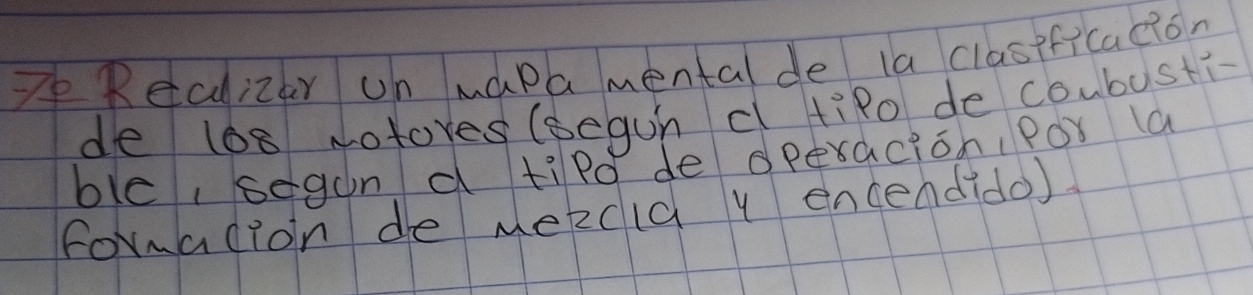 7º Realizar un mapa mental de la clasificación
de los motores (según el tipo de combusti-
ble, segun el tipo de operación, Por la
formación de mezcla y encendido).